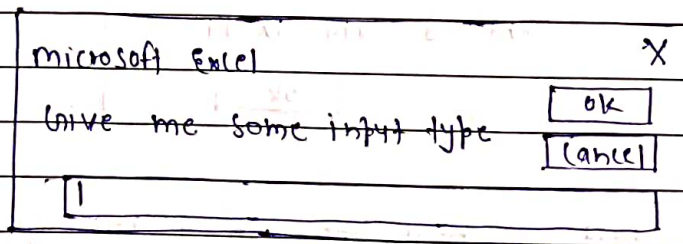 microsoft Excel X
Give me some input type
OK
Cancel